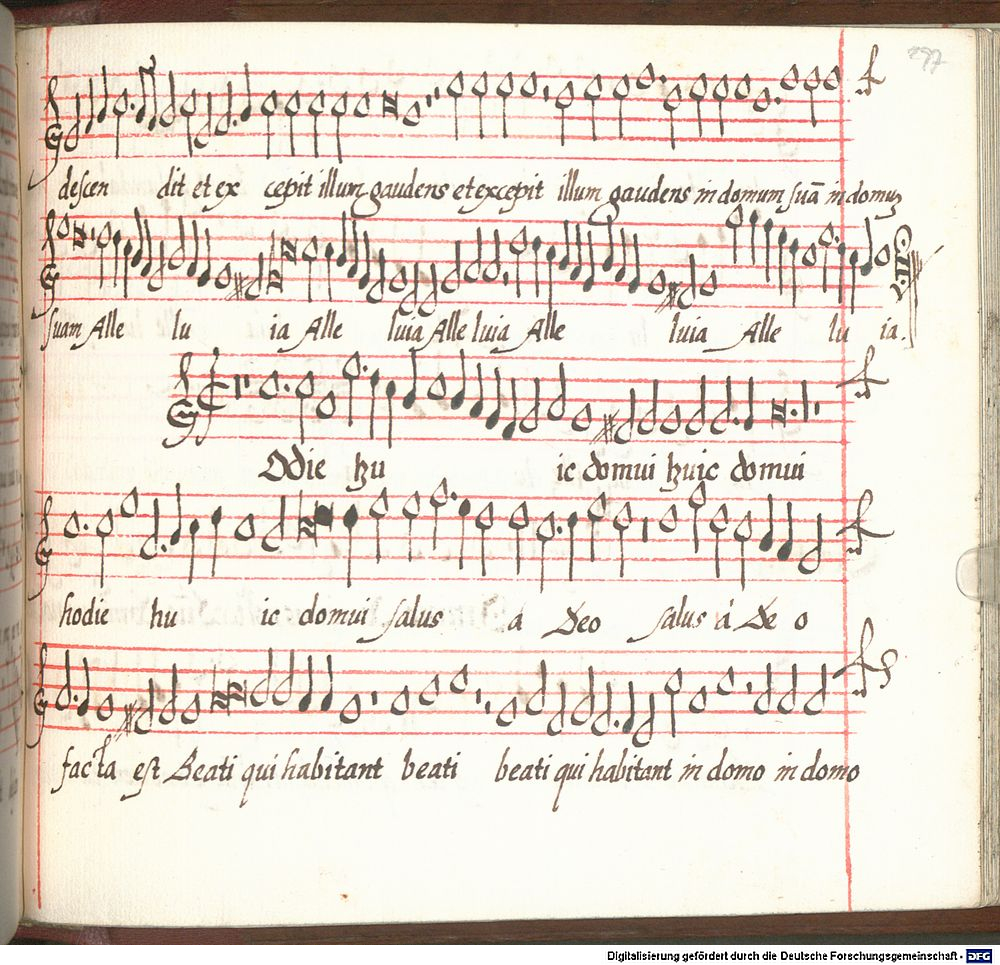 277
descen dit et ex cepit illum gaudens et excepit illum gaudens in domum suã in domum
suam Alle lu ia Alle luia Alle luia Alle luia Alle lu ia.
Odie hu ic domui huic domui
hodie hu ic domui salus a Deo salus a De o
facta est Beati qui habitant beati beati qui habitant in domo in domo
Digitalisierung gefördert durch die Deutsche Forschungsgemeinschaft - DFG